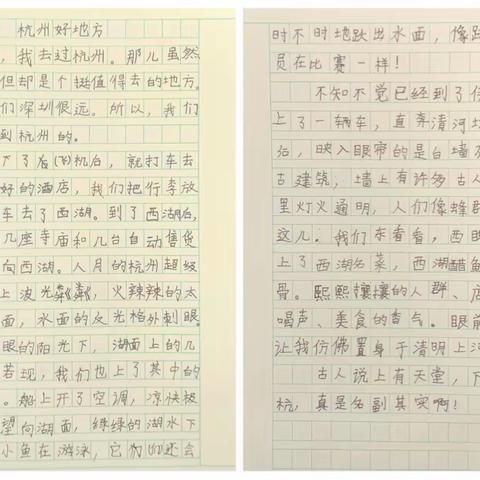 杭州好地方
，我去过杭州。那儿虽然
但却是个挺值得去的地方。
们深圳很远。所以，我们
到杭州的。
下了后(下)机后，就打车去
好的酒店，我们把行李放
车去了西湖。到了西湖后，
几座寺庙和几台自动售货
向西湖。八月的杭州超级
上波光粼粼，火辣辣的太
面，水面的反光格外刺眼。
眼的阳光下，湖面上的几
若现，我们也上了其中的
。船上开了空调，凉快极
望向湖面，绿绿的湖水下
小鱼在游泳，它们还会
时不时地跃出水面，像跳
员在比赛一样！
不知不觉已经到了傍
上了一辆车，直奔清河坊
后，映入眼帘的是白墙灰
古建筑，墙上有许多古人
里灯火通明，人们像蜂群
这儿。我们东看看，西瞧
上了西湖名菜，西湖醋鱼
骨。熙熙攘攘的人群、店
喝声、美食的香气。眼前
让我仿佛置身于清明上河
古人说上有天堂，下
杭，真是名副其实啊！